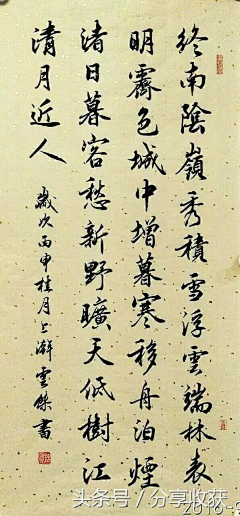 終南陰嶺秀積雪浮雲端林表
明霽色城中增暮寒移舟泊煙
渚日暮客愁新野曠天低樹江
清月近人
歲次丙申桂月上澣雲傑書
头条号 / 分享收获